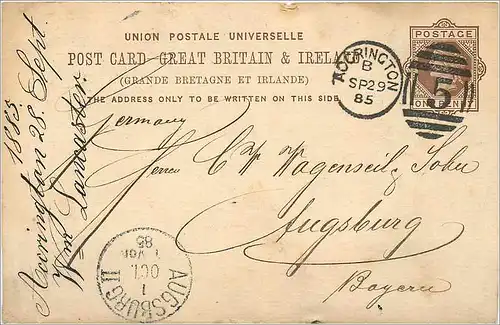 UNION POSTALE UNIVERSELLE
POST CARD GREAT BRITAIN & IRELA
(GRANDE BRETAGNE ET IRLANDE)
THE ADDRESS ONLY TO BE WRITTEN ON THIS SIDE
POSTAGE
5
ONE PENNY
ACCRINGTON
B
SP29
85
Germany
Herrn C Wagenseil Sohn
Augsburg
Bayern
Accrington 28. Sept. 1885
Wm Lancaster
AUGSBURG II
1
OCT.
85